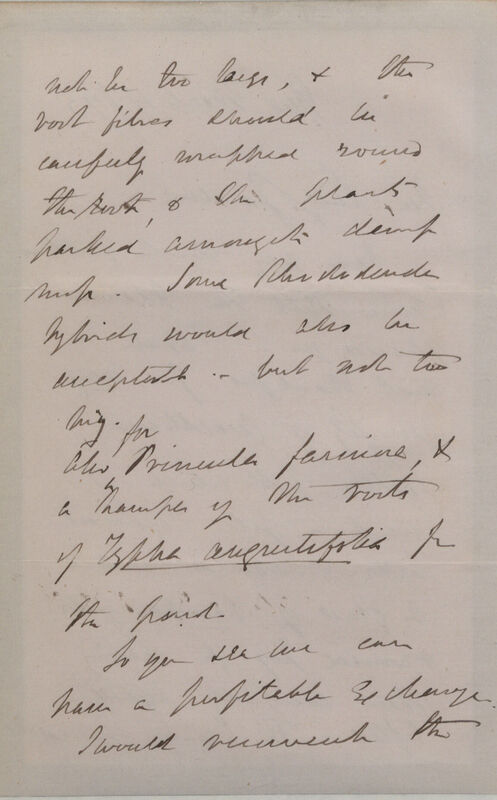 not be too large, & the
root fibres should be
carefully wrapped round
the root, & the plants
packed amongst damp
Some Rhododendr
hybrids would also be
acceptable - but not too
big. for
Also Primula farinosa, &
a hamper of the roots
of Typha angustifolia for
the pond
So you see we can
have a profitable Exchange.
I would the